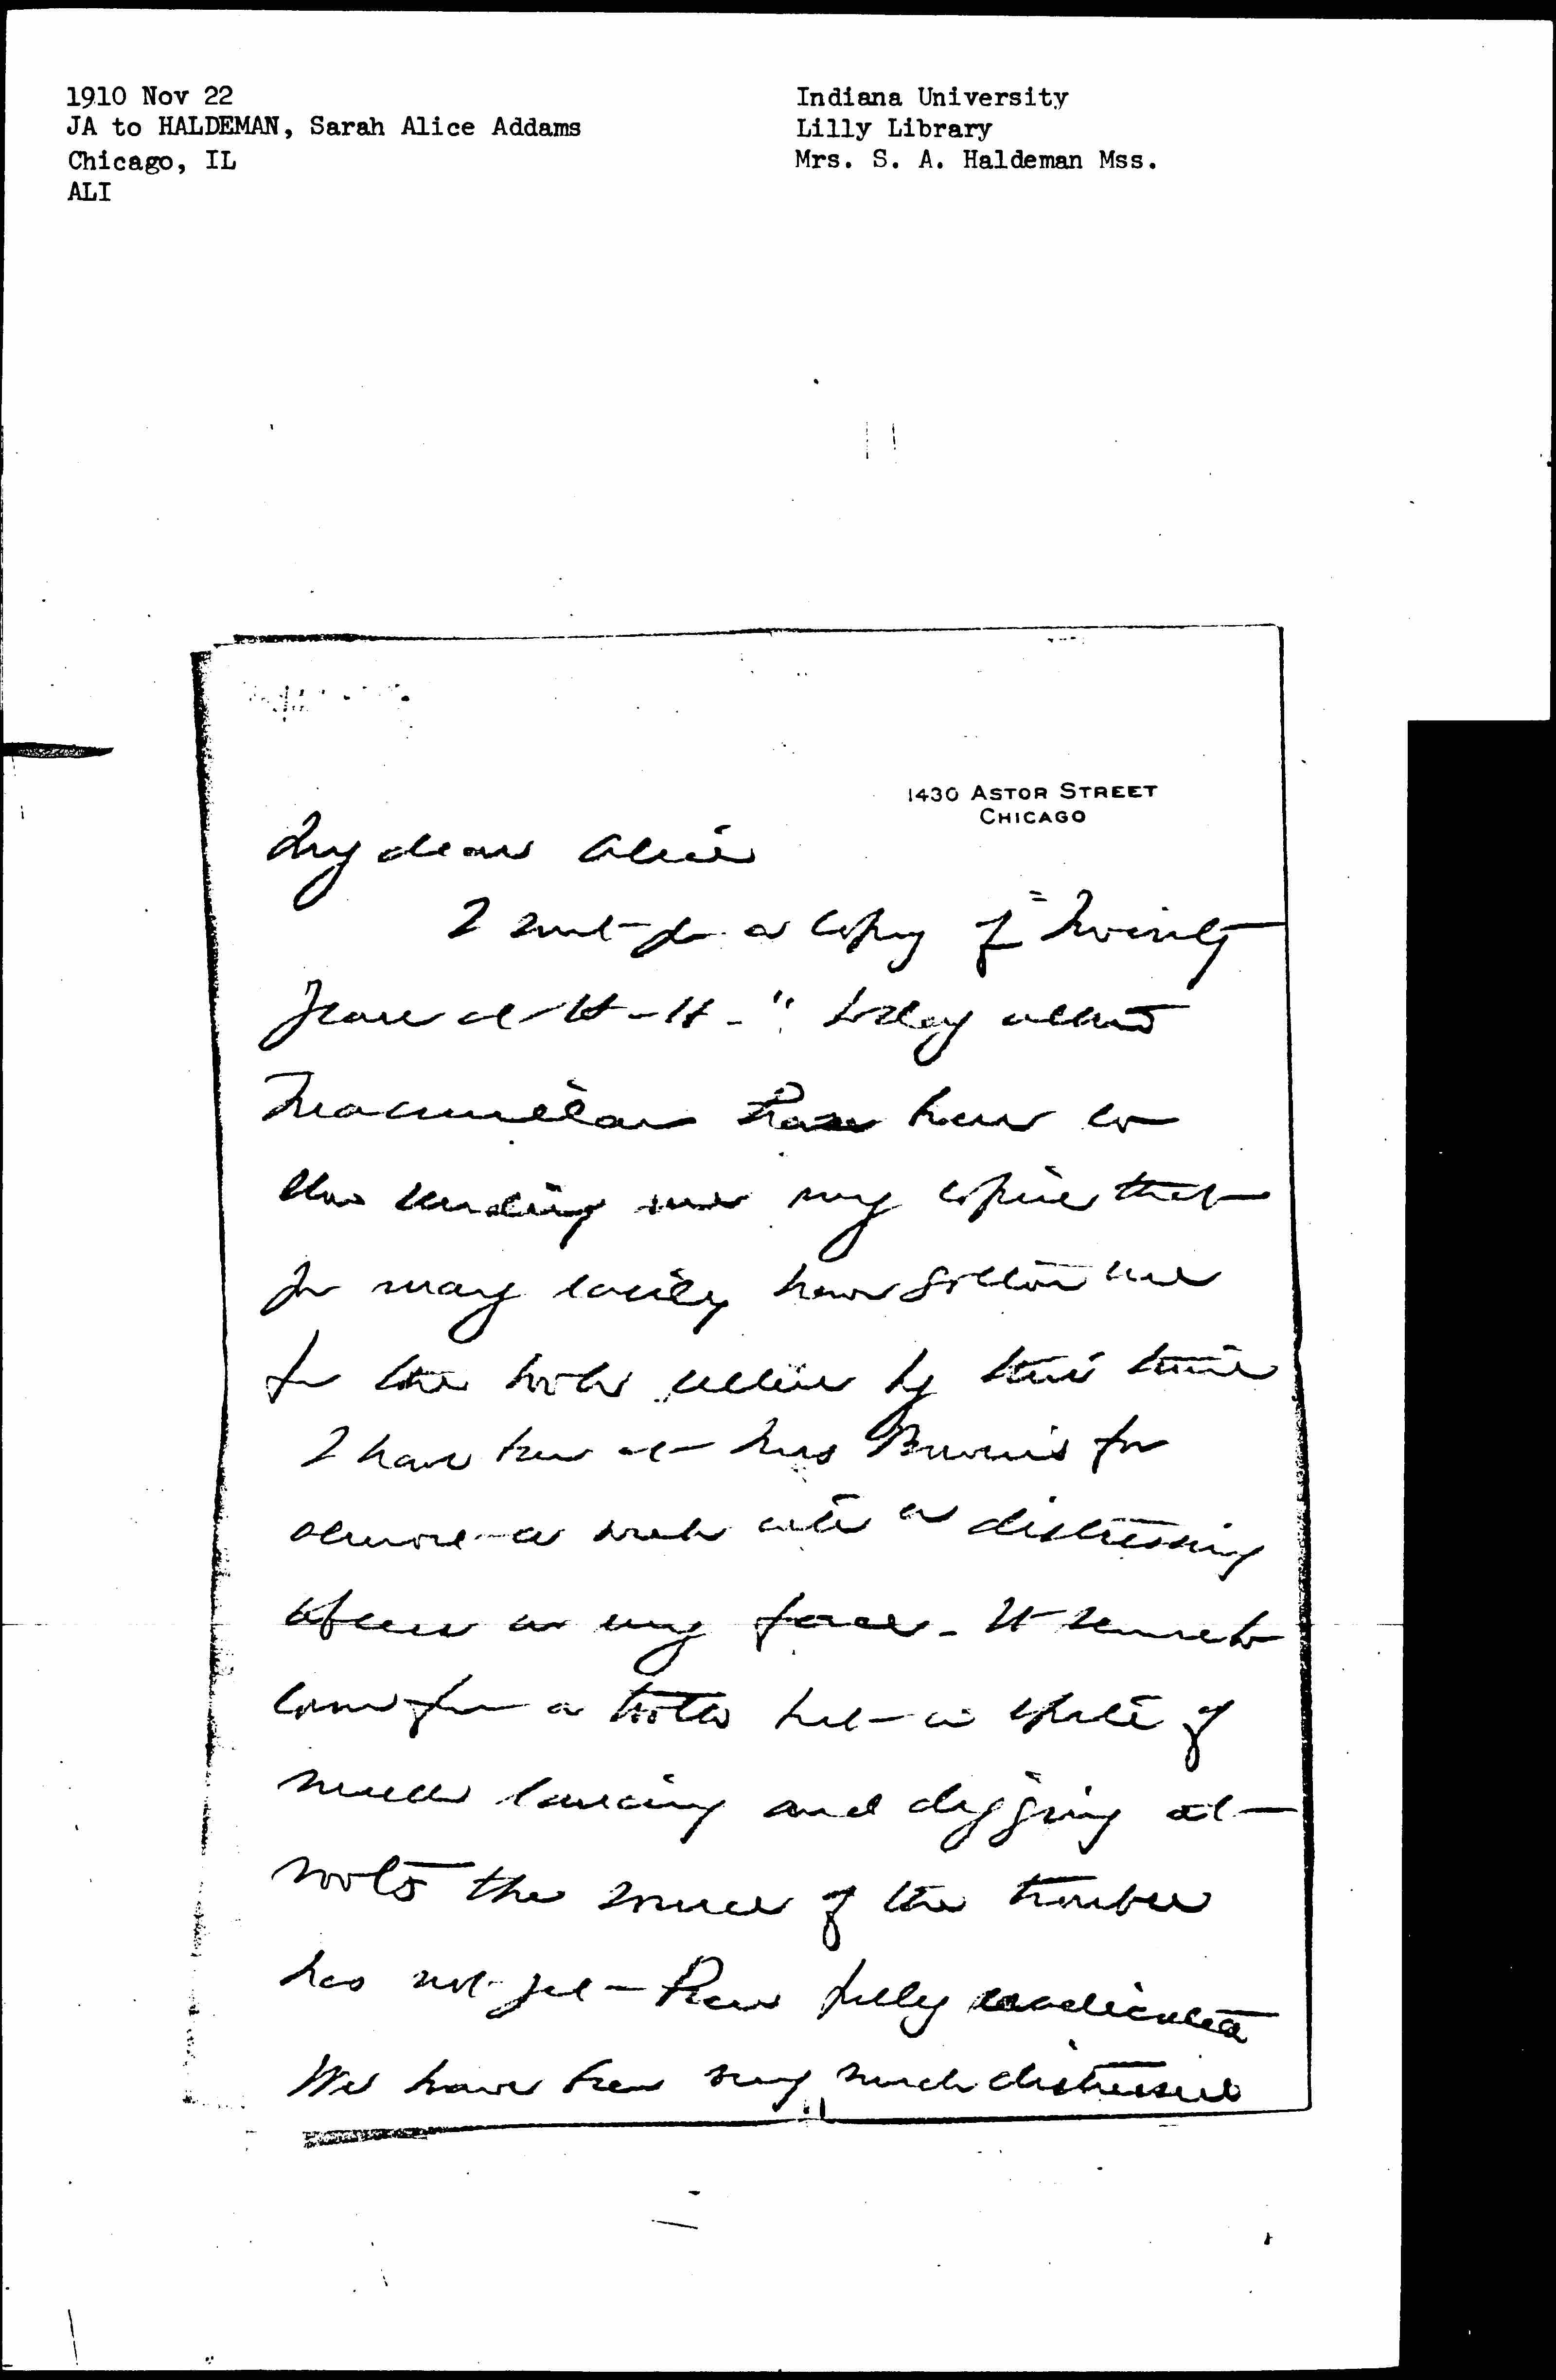 1910 Nov 22
JA to HALDEMAN, Sarah Alice Addams
Chicago, IL
ALI
Indiana University
Lilly Library
Mrs. S. A. Haldeman Mss.
1430 ASTOR STREET
CHICAGO
My dear Alice
I sent for a copy of "Twenty
Years at H-H-" today altho
Macmillan have been so
slow sending me my copies that
you may easily have gotten one
for the book seller by this time
I have been at Mrs Bowen's for
almost a week with a distressing
abscess in my face. It seemed to
come from a tooth but in spite of
much lancing and digging at
roots the source of the trouble
has not yet been fully eradicated
We have been very much distressed